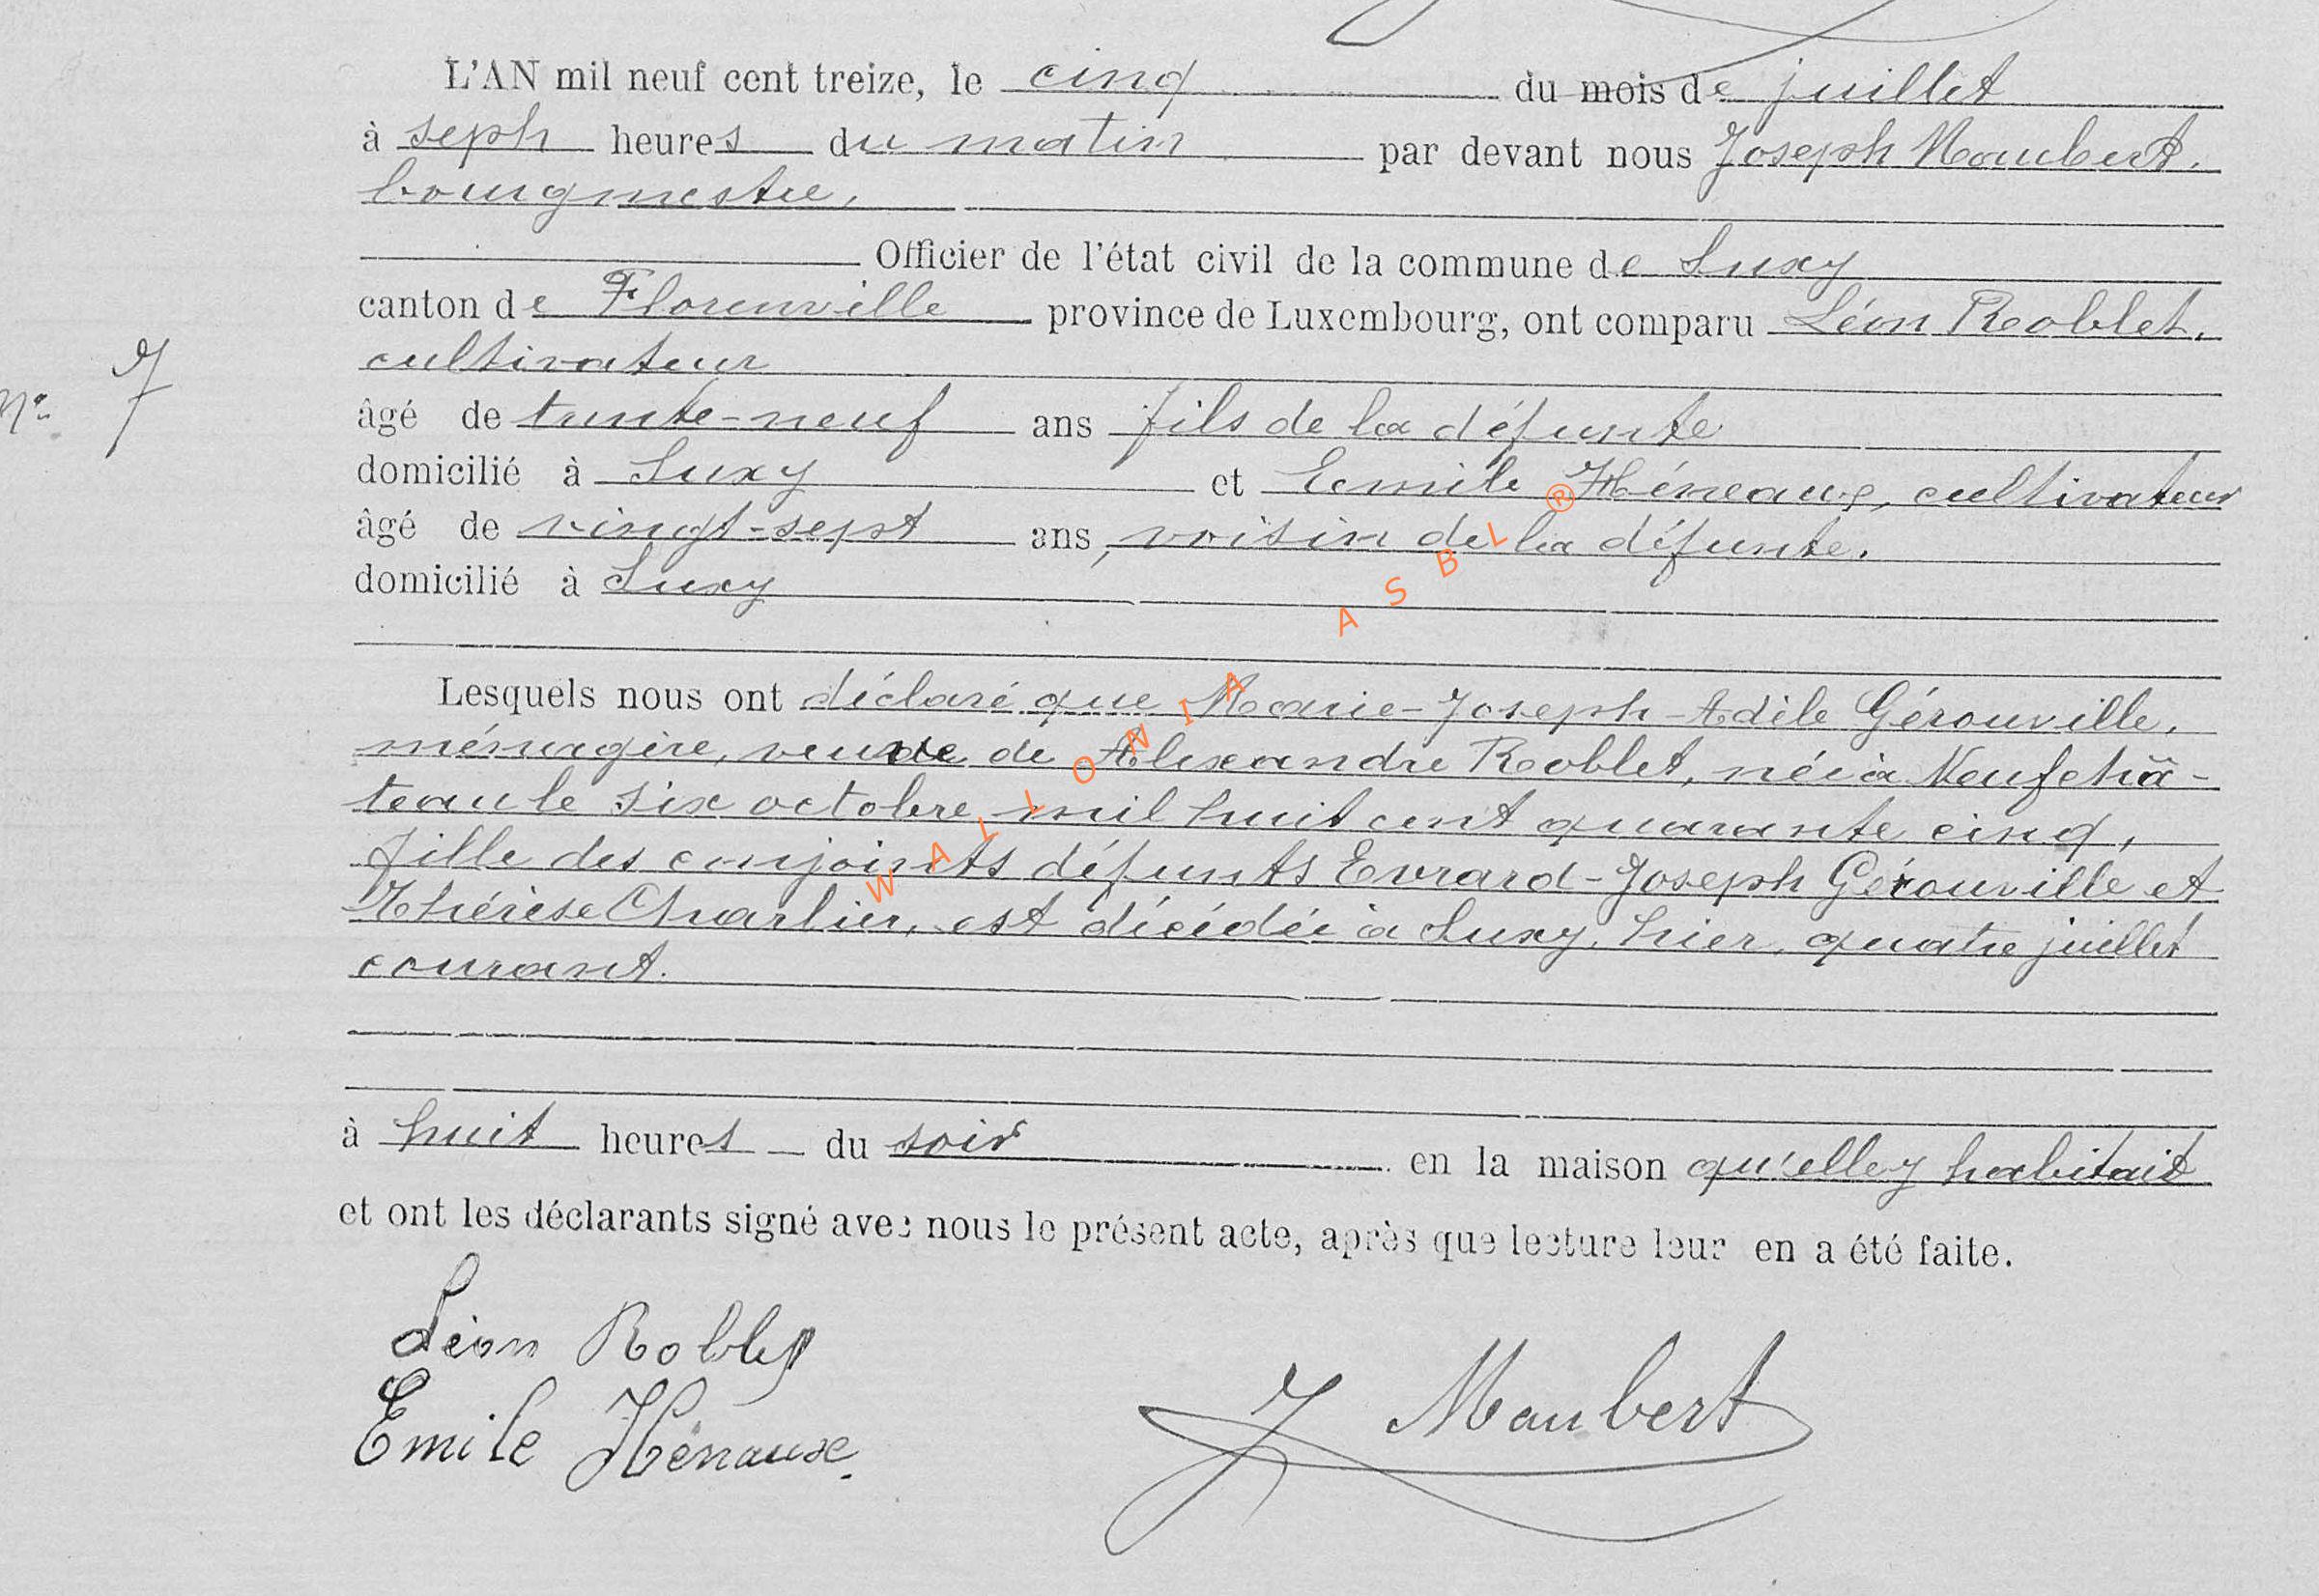 L'AN mil neuf cent treize, le cinq du mois de juillet
à seph heures du matin par devant nous Joseph Maubert,
bourgmestre,
Officier de l'état civil de la commune de Suxy
canton de Florenville province de Luxembourg, ont comparu Léon Roblet,
cultivateur
Nº 7
âgé de trente-neuf ans fils de la défunte
domicilié à Suxy et Emile Hénaux, cultivateur
âgé de vingt-sept ans, voisin de la défunte.
domicilié à Suxy
Lesquels nous ont déclaré que Marie-Joseph-Adèle Gérouville,
ménagère, veuve de Alexandre Roblet, née à Neufchâ-
teau le six octobre mil huit cent quarante cinq,
fille des conjoints défunts Evrard-Joseph Gérouville et
Thérèse Charlier, est décédée à Suxy, hier, quatre juillet
courant.
à huit heures du soir en la maison qu'elle y habitait
et ont les déclarants signé avec nous le présent acte, après que lecture leur en a été faite.
Léon Roblet
Emile Hénaux.
J Maubert
WALLONIA ASBL ®